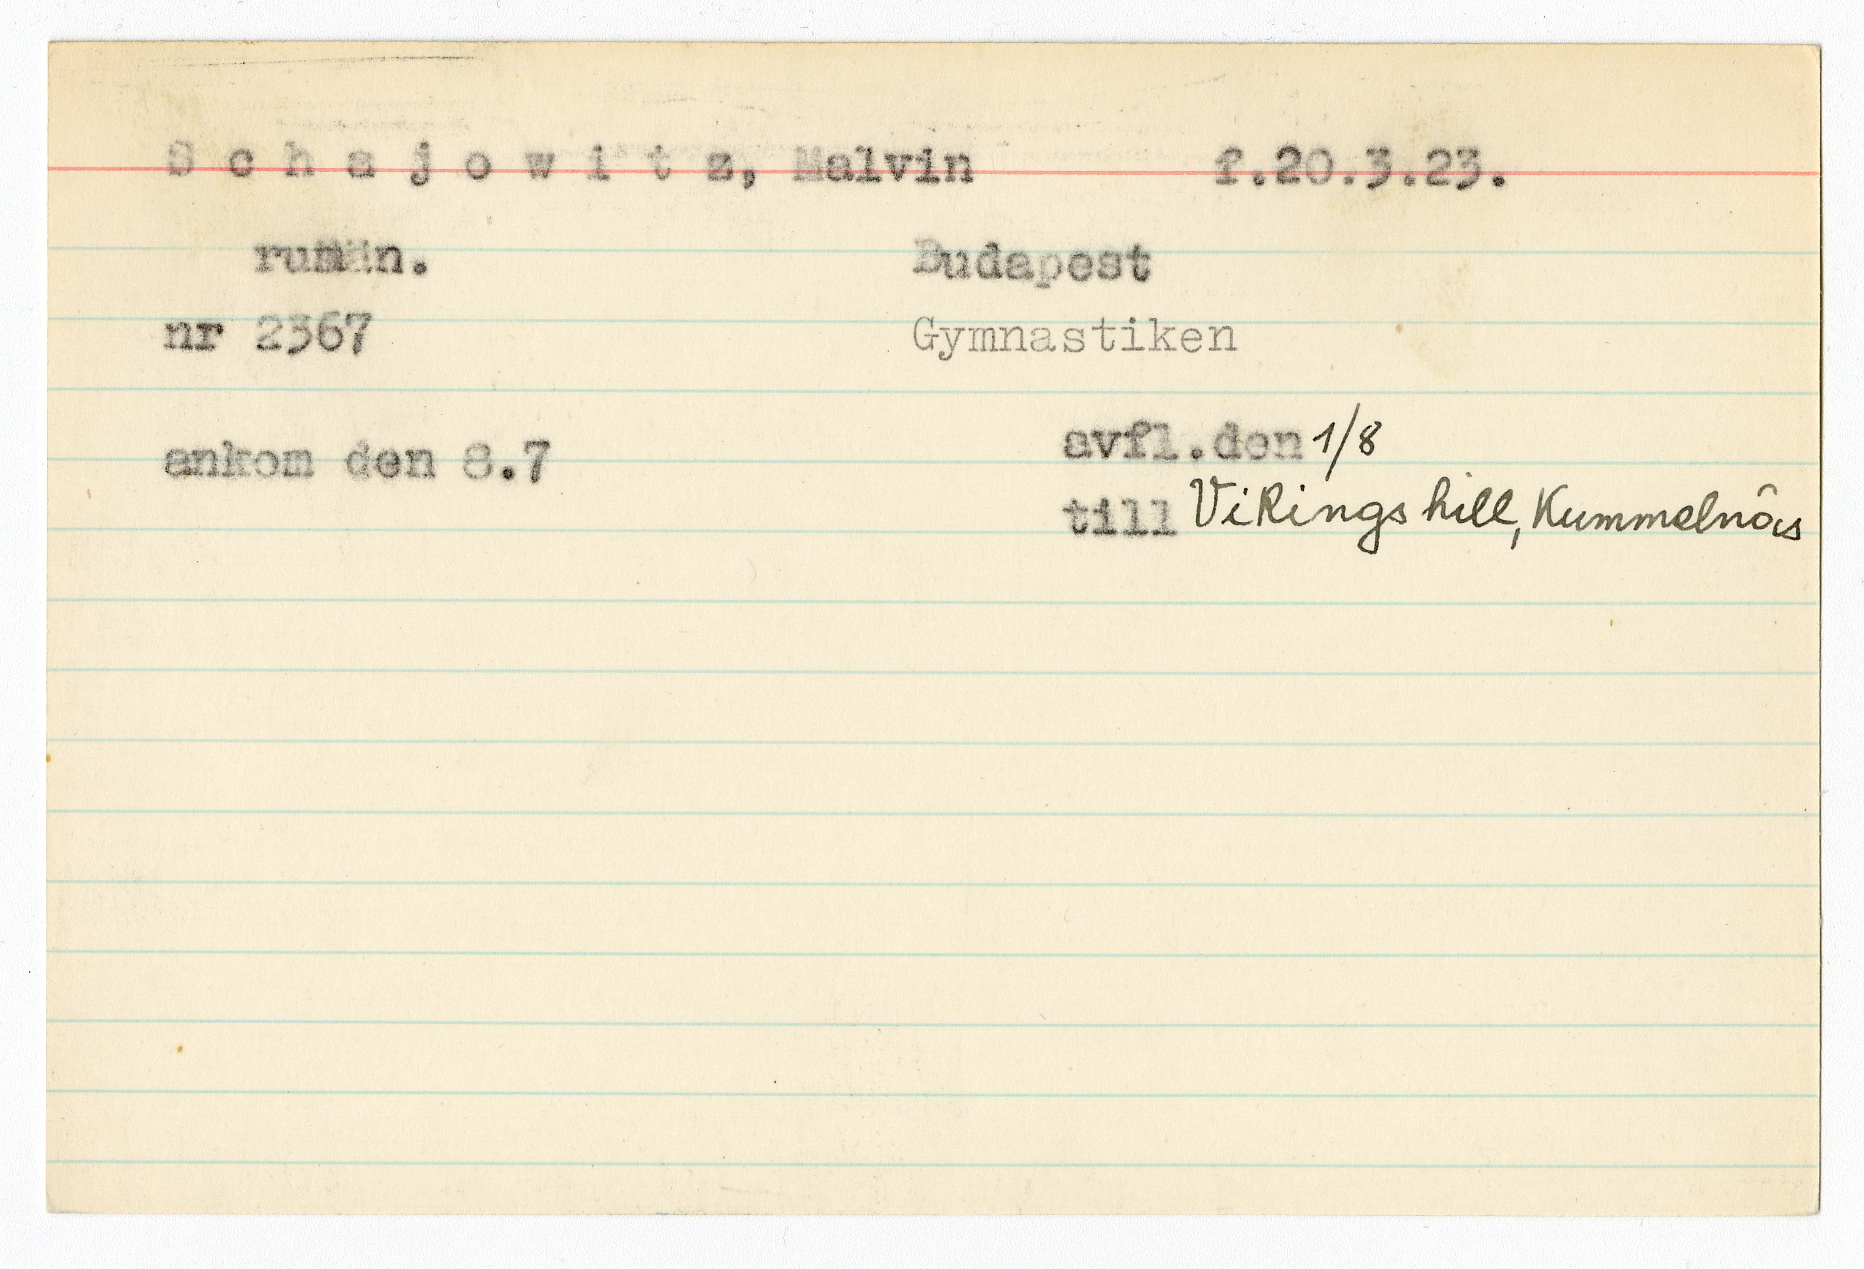 S c h a j o w i t z, Malvin f.20.3.23.
rumän. Budapest
nr 2367 Gymnastiken
avfl.den 1/8
ankom den 8.7
till Vikingshill, Kummelnäs